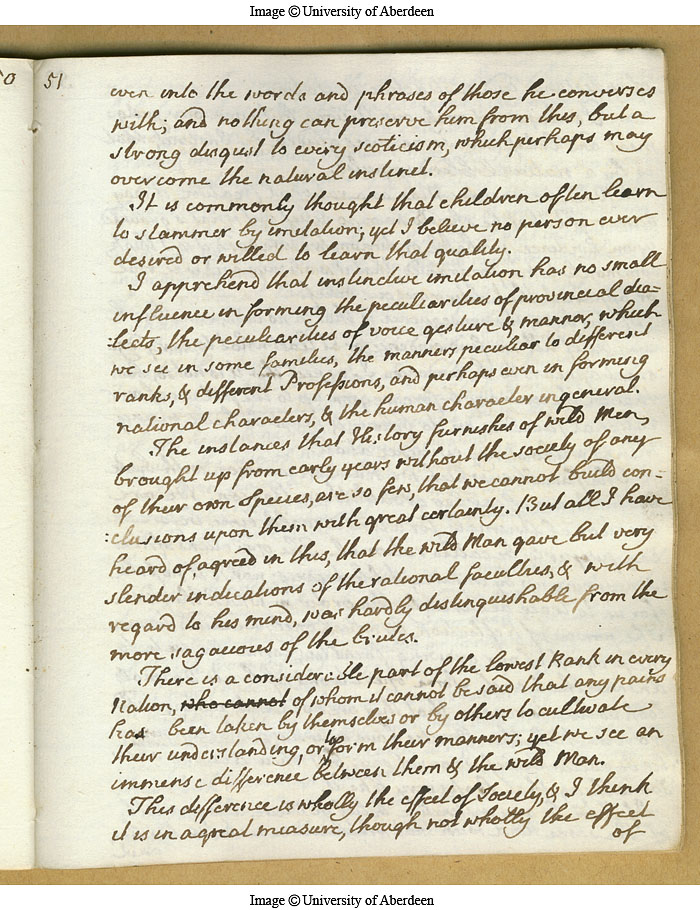 Image © University of Aberdeen
51
even into the words and phrases of those he converses
with; and nothing can preserve him from this, but a
strong disgust to every scoticism, which perhaps may
overcome the natural instinct.
It is commonly thought that children often learn
to stammer by imitation; yet I believe no person ever
desired or willed to learn that quality.
I apprehend that instinctive imitation has no small
influence in forming the peculiarities of provincial dia-
:lects, the peculiarities of voice gesture & manner, which
we see in some families, the manners peculiar to different
ranks, & different Professions, and perhaps even in forming
national characters, & the human character in general.
The instances that History furnishes of wild Men,
brought up from early years without the society of any
of their own Species, are so few, that we cannot build con-
:clusions upon them with great certainty. But all I have
heard of, agreed in this, that the wild Man gave but very
slender indications of the rational faculties, & with
regard to his mind, was hardly distinguishable from the
more sagacious of the brutes.
There is a considerable part of the lowest Rank in every
Nation, who cannot of whom it cannot be said that any pains
has been taken by themselves or by others to cultivate
their understanding, or to form their manners; yet we see an
immense difference between them & the wild Man.
This difference is wholly the effect of Society, & I think
it is in a great measure, though not wholly the effect
of
Image © University of Aberdeen